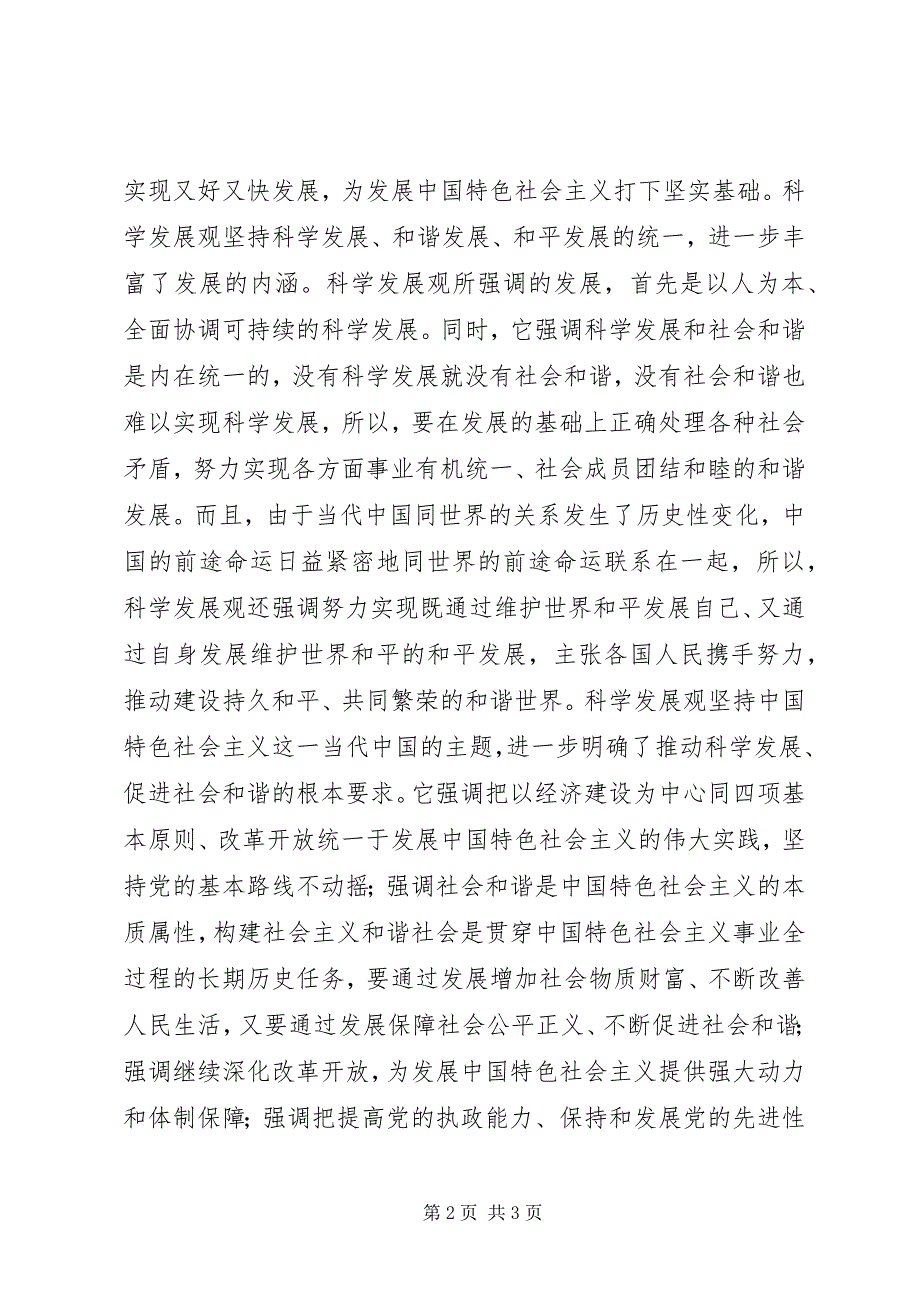 实现又好又快发展，为发展中国特色社会主义打下坚实基础。科
学发展观坚持科学发展、和谐发展、和平发展的统一，进一步丰
富了发展的内涵。科学发展观所强调的发展，首先是以人为本、
全面协调可持续的科学发展。同时，它强调科学发展和社会和谐
是内在统一的，没有科学发展就没有社会和谐，没有社会和谐也
难以实现科学发展，所以，要在发展的基础上正确处理各种社会
矛盾，努力实现各方面事业有机统一、社会成员团结和睦的和谐
发展。而且，由于当代中国同世界的关系发生了历史性变化，中
国的前途命运日益紧密地同世界的前途命运联系在一起，所以，
科学发展观还强调努力实现既通过维护世界和平发展自己、又通
过自身发展维护世界和平的和平发展，主张各国人民携手努力，
推动建设持久和平、共同繁荣的和谐世界。科学发展观坚持中国
特色社会主义这一当代中国的主题，进一步明确了推动科学发展、
促进社会和谐的根本要求。它强调把以经济建设为中心同四项基
本原则、改革开放统一于发展中国特色社会主义的伟大实践，坚
持党的基本路线不动摇；强调社会和谐是中国特色社会主义的本
质属性，构建社会主义和谐社会是贯穿中国特色社会主义事业全
过程的长期历史任务，要通过发展增加社会物质财富、不断改善
人民生活，又要通过发展保障社会公平正义、不断促进社会和谐；
强调继续深化改革开放，为发展中国特色社会主义提供强大动力
和体制保障；强调把提高党的执政能力、保持和发展党的先进性
第 2 页 共 3 页